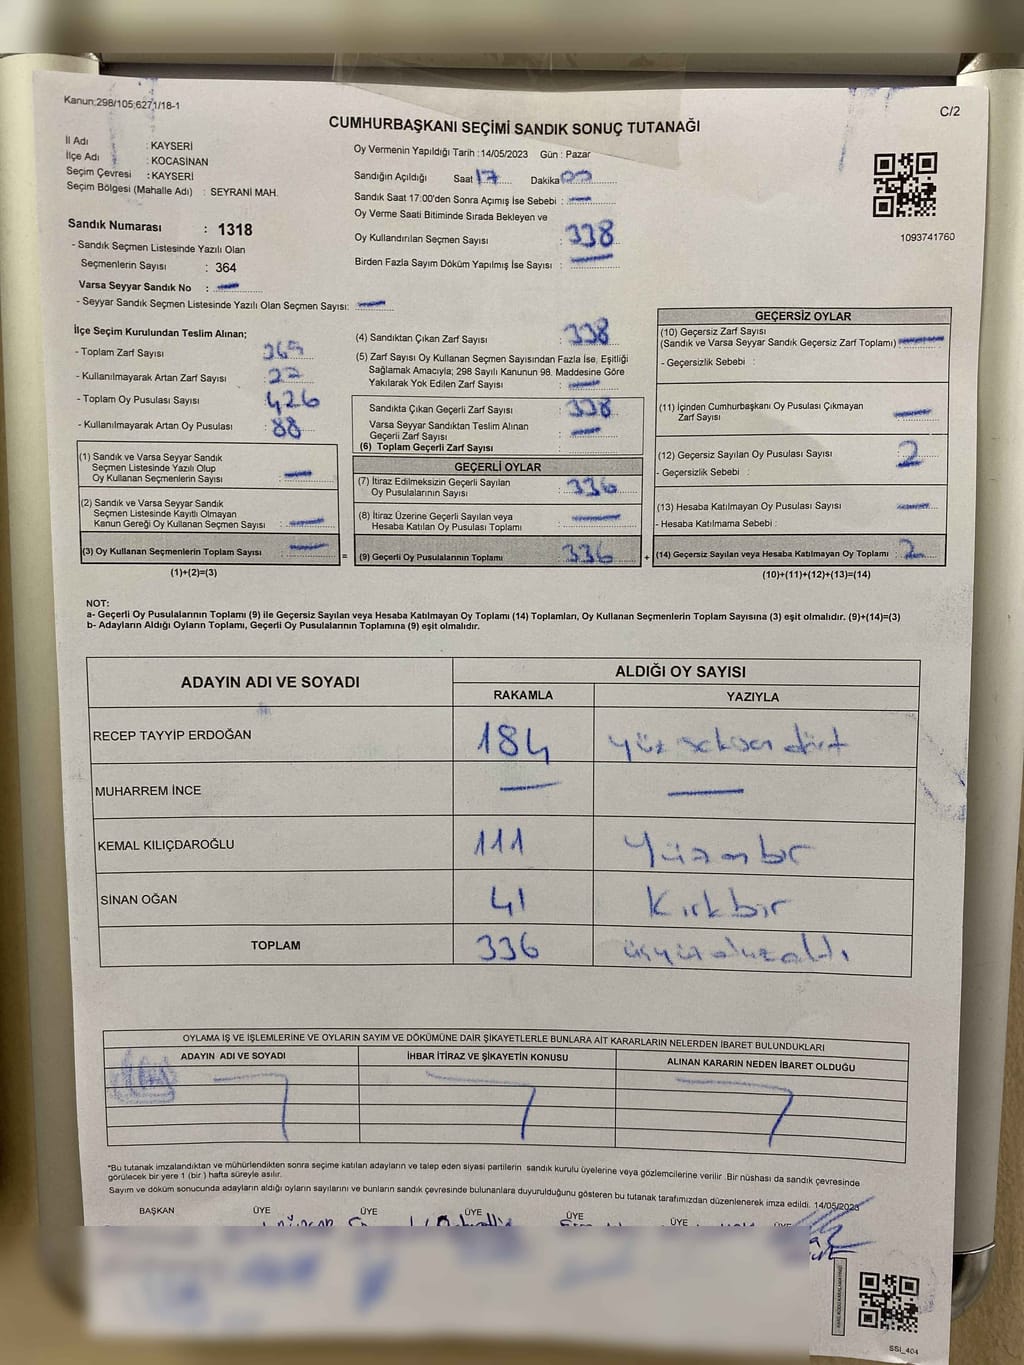 Kanun:298/105;6271/18-1
C/2
CUMHURBAŞKANI SEÇİMİ SANDIK SONUÇ TUTANAĞI
İl Adı : KAYSERİ
İlçe Adı : KOCASİNAN
Seçim Çevresi : KAYSERİ
Seçim Bölgesi (Mahalle Adı) : SEYRANİ MAH.
Sandık Numarası : 1318
- Sandık Seçmen Listesinde Yazılı Olan
Seçmenlerin Sayısı : 364
Varsa Seyyar Sandık No : —
- Seyyar Sandık Seçmen Listesinde Yazılı Olan Seçmen Sayısı: —
Oy Vermenin Yapıldığı Tarih : 14/05/2023 Gün : Pazar
Sandığın Açıldığı Saat 17 Dakika 00
Sandık Saat 17:00'den Sonra Açımış İse Sebebi : —
Oy Verme Saati Bitiminde Sırada Bekleyen ve
Oy Kullandırılan Seçmen Sayısı : 338
Birden Fazla Sayım Döküm Yapılmış İse Sayısı : —
1093741760
İlçe Seçim Kurulundan Teslim Alınan;
- Toplam Zarf Sayısı : 365
- Kullanılmayarak Artan Zarf Sayısı : 27
- Toplam Oy Pusulası Sayısı : 426
- Kullanılmayarak Artan Oy Pusulası : 88
(1) Sandık ve Varsa Seyyar Sandık
Seçmen Listesinde Yazılı Olup
Oy Kullanan Seçmenlerin Sayısı : —
(2) Sandık ve Varsa Seyyar Sandık
Seçmen Listesinde Kayıtlı Olmayan
Kanun Gereği Oy Kullanan Seçmen Sayısı : —
(3) Oy Kullanan Seçmenlerin Toplam Sayısı : —
(1)+(2)=(3)
=
(4) Sandıktan Çıkan Zarf Sayısı : 338
(5) Zarf Sayısı Oy Kullanan Seçmen Sayısından Fazla İse, Eşitliği
Sağlamak Amacıyla; 298 Sayılı Kanunun 98. Maddesine Göre
Yakılarak Yok Edilen Zarf Sayısı : —
Sandıkta Çıkan Geçerli Zarf Sayısı : 338
Varsa Seyyar Sandıktan Teslim Alınan
Geçerli Zarf Sayısı : —
(6) Toplam Geçerli Zarf Sayısı :
GEÇERLİ OYLAR
(7) İtiraz Edilmeksizin Geçerli Sayılan
Oy Pusulalarının Sayısı : 336
(8) İtiraz Üzerine Geçerli Sayılan veya
Hesaba Katılan Oy Pusulası Toplamı : —
(9) Geçerli Oy Pusulalarının Toplamı : 336
+
GEÇERSİZ OYLAR
(10) Geçersiz Zarf Sayısı
(Sandık ve Varsa Seyyar Sandık Geçersiz Zarf Toplamı) : —
- Geçersizlik Sebebi :
(11) İçinden Cumhurbaşkanı Oy Pusulası Çıkmayan
Zarf Sayısı : —
(12) Geçersiz Sayılan Oy Pusulası Sayısı : 2
- Geçersizlik Sebebi :
(13) Hesaba Katılmayan Oy Pusulası Sayısı : —
- Hesaba Katılmama Sebebi :
(14) Geçersiz Sayılan veya Hesaba Katılmayan Oy Toplamı : 2
(10)+(11)+(12)+(13)=(14)
NOT:
a- Geçerli Oy Pusulalarının Toplamı (9) ile Geçersiz Sayılan veya Hesaba Katılmayan Oy Toplamı (14) Toplamları, Oy Kullanan Seçmenlerin Toplam Sayısına (3) eşit olmalıdır. (9)+(14)=(3)
b- Adayların Aldığı Oyların Toplamı, Geçerli Oy Pusulalarının Toplamına (9) eşit olmalıdır.
ADAYIN ADI VE SOYADI ALDIĞI OY SAYISI
RAKAMLA YAZIYLA
RECEP TAYYİP ERDOĞAN 184 yüz seksen dört
MUHARREM İNCE — —
KEMAL KILIÇDAROĞLU 111 Yüzonbir
SİNAN OĞAN 41 Kırkbir
TOPLAM 336 üçyüzotuzaltı
OYLAMA İŞ VE İŞLEMLERİNE VE OYLARIN SAYIM VE DÖKÜMÜNE DAİR ŞİKAYETLERLE BUNLARA AİT KARARLARIN NELERDEN İBARET BULUNDUKLARI
ADAYIN ADI VE SOYADI İHBAR İTİRAZ VE ŞİKAYETİN KONUSU ALINAN KARARIN NEDEN İBARET OLDUĞU
*Bu tutanak imzalandıktan ve mühürlendikten sonra seçime katılan adayların ve talep eden siyasi partilerin sandık kurulu üyelerine veya gözlemcilerine verilir. Bir nüshası da sandık çevresinde
görülecek bir yere 1 (bir) hafta süreyle asılır.
Sayım ve döküm sonucunda adayların aldığı oyların sayılarını ve bunların sandık çevresinde bulunanlara duyurulduğunu gösteren bu tutanak tarafımızdan düzenlenerek imza edildi. 14/05/2023
BAŞKAN ÜYE ÜYE ÜYE ÜYE ÜYE ÜYE
SSI_404